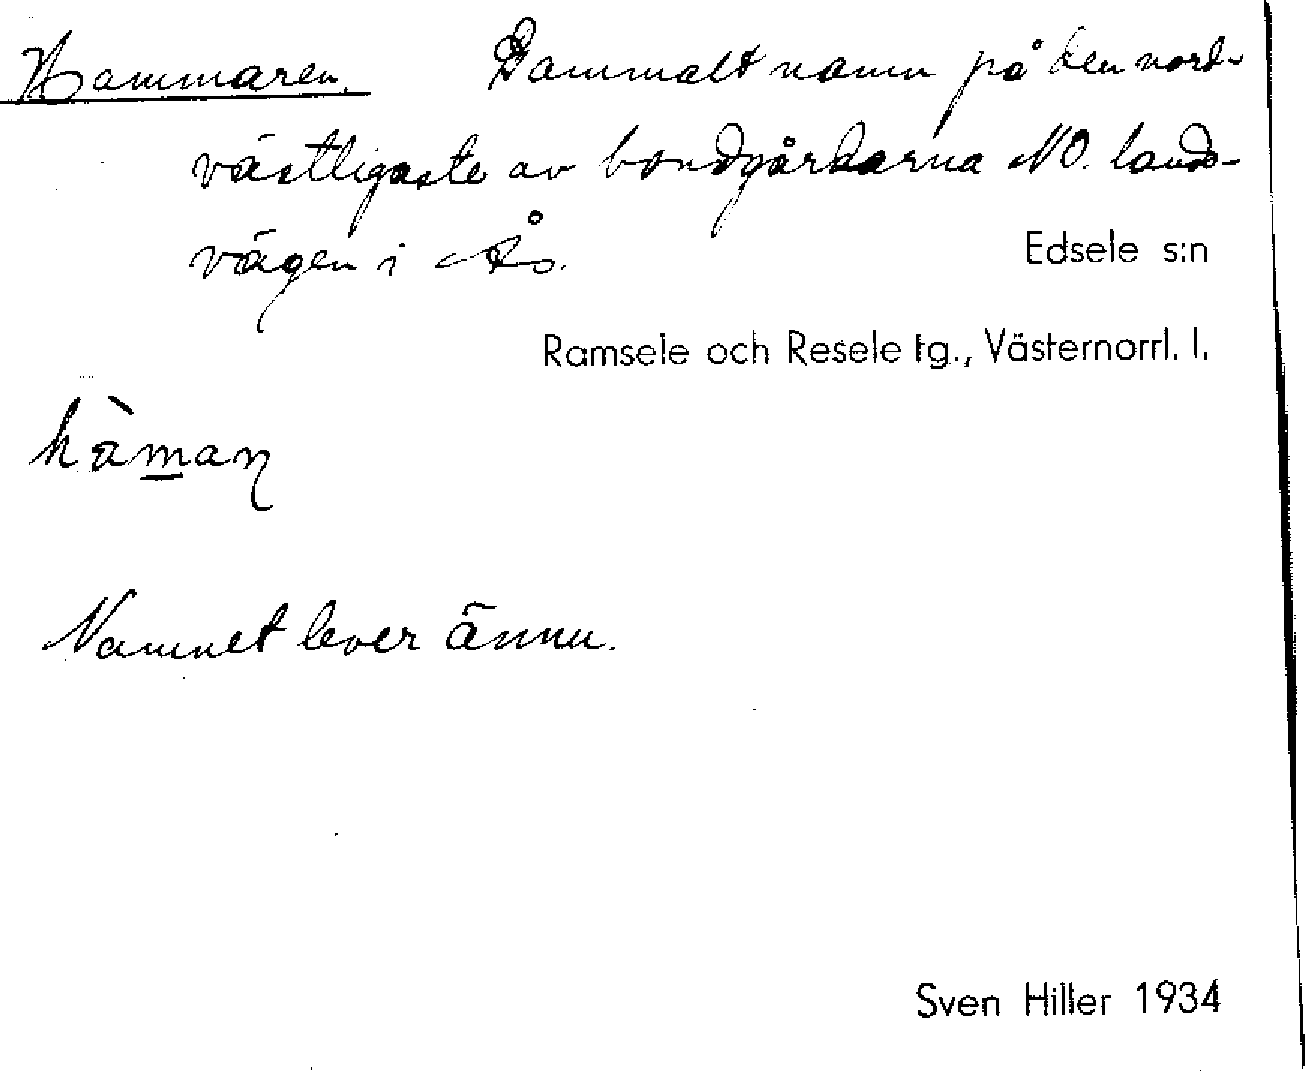 Hammaren. Gammalt namn på den nord-
västligaste av bondgårdarna NO. lands-
vägen i Ås.
Edsele s:n
Ramsele och Resele tg., Västernorrl. l.
hàman
Namnet lever ännu.
Sven Hiller 1934